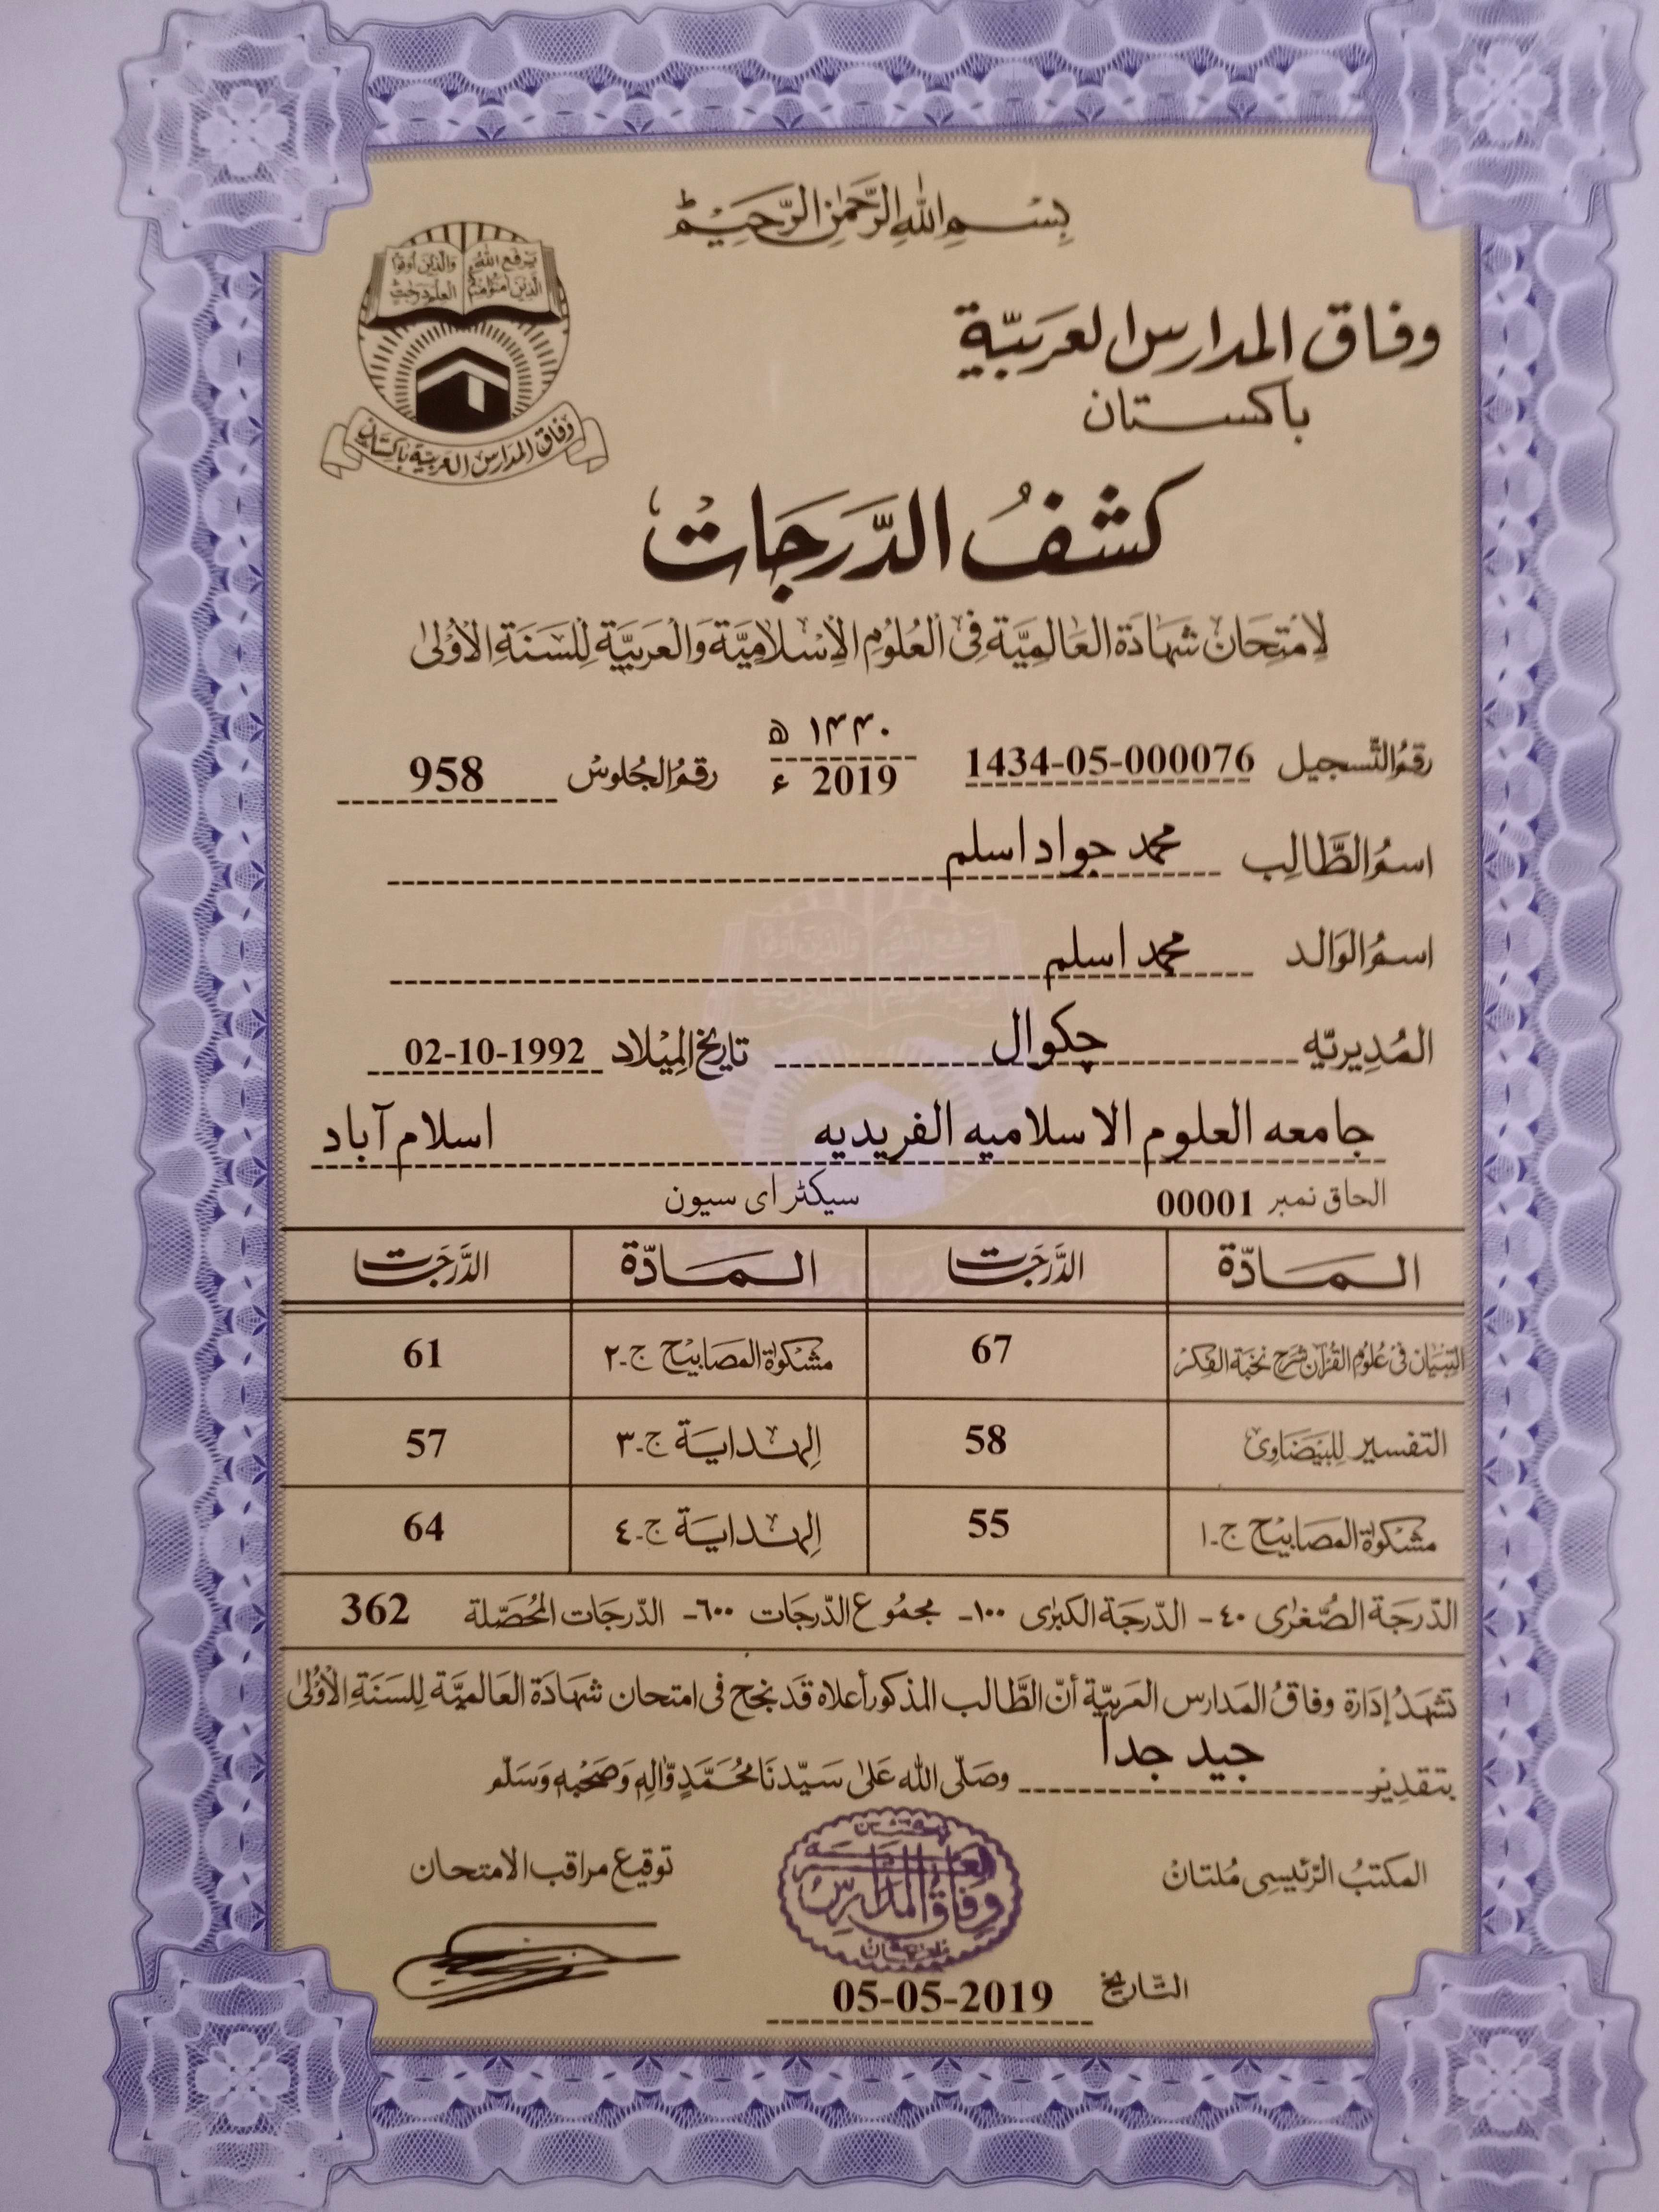 بِسْمِ اللهِ الرَّحْمٰنِ الرَّحِيْمِ
يَرْفَعِ اللهُ الَّذِيْنَ اٰمَنُوْا مِنْكُمْ
وَالَّذِيْنَ اُوتُوا الْعِلْمَ دَرَجٰتٍ
وفاق المدارس العربية باكستان
وفاق المدارس العربيّة
باكستان
كشفُ الدَّرَجَات
لِامْتِحَانِ شَهَادَةِ العَالَمِيَّةِ فِى العُلُوْمِ الإِسْلَامِيَّةِ وَالْعَرَبِيَّةِ لِلسَّنَةِ الأُوْلىٰ
رقمُ التَّسجيل 1434-05-000076 ۱۴۴۰ ھ 2019 ء رقمُ الجُلوسْ 958
اسمُ الطَّالِب محمد جواد اسلم
اسمُ الوَالد محمد اسلم
المُدِيريّه چكوال تاريخ المِيْلاد 02-10-1992
جامعه العلوم الاسلاميه الفريديه اسلام آباد
الحاق نمبر 00001 سيكٹر ای سیون
المَادّة الدَّرَجَات المَادّة الدَّرَجَات
التِّبيَان فى عُلومِ القُرآن شرح نخبة الفكر 67 مشكوٰة المصابيح ج-٢ 61
التفسير لِلبَيضَاوِى 58 الهدَايَة ج-٣ 57
مشكوٰة المصابيح ج-١ 55 الهدَايَة ج-٤ 64
الدّرجَة الصُّغرٰى ٤٠- الدّرجَة الكبرٰى ١٠٠- مجمُوع الدّرجَات ٦٠٠- الدّرجَات المُحَصَّلة 362
تشهَدُ إدَارة وفاقُ المَدارس العَربيّة أنّ الطَّالب المذكور أعلاه قَد نجح فى امتحان شهَادَة العَالميَّة لِلسَّنَة الأُوْلىٰ
بتقدِير جيد جداً وصَلّى الله عَلىٰ سَيّدنَا مُحَمَّدٍ وَّاٰلِهٖ وَصَحْبِهٖ وَسَلّم
المكتبُ الرّئيسِى مُلتانْ
وفاق المدارس العربية
ملتان باكستان
توقيع مراقب الامتحان
التّاريخ 05-05-2019